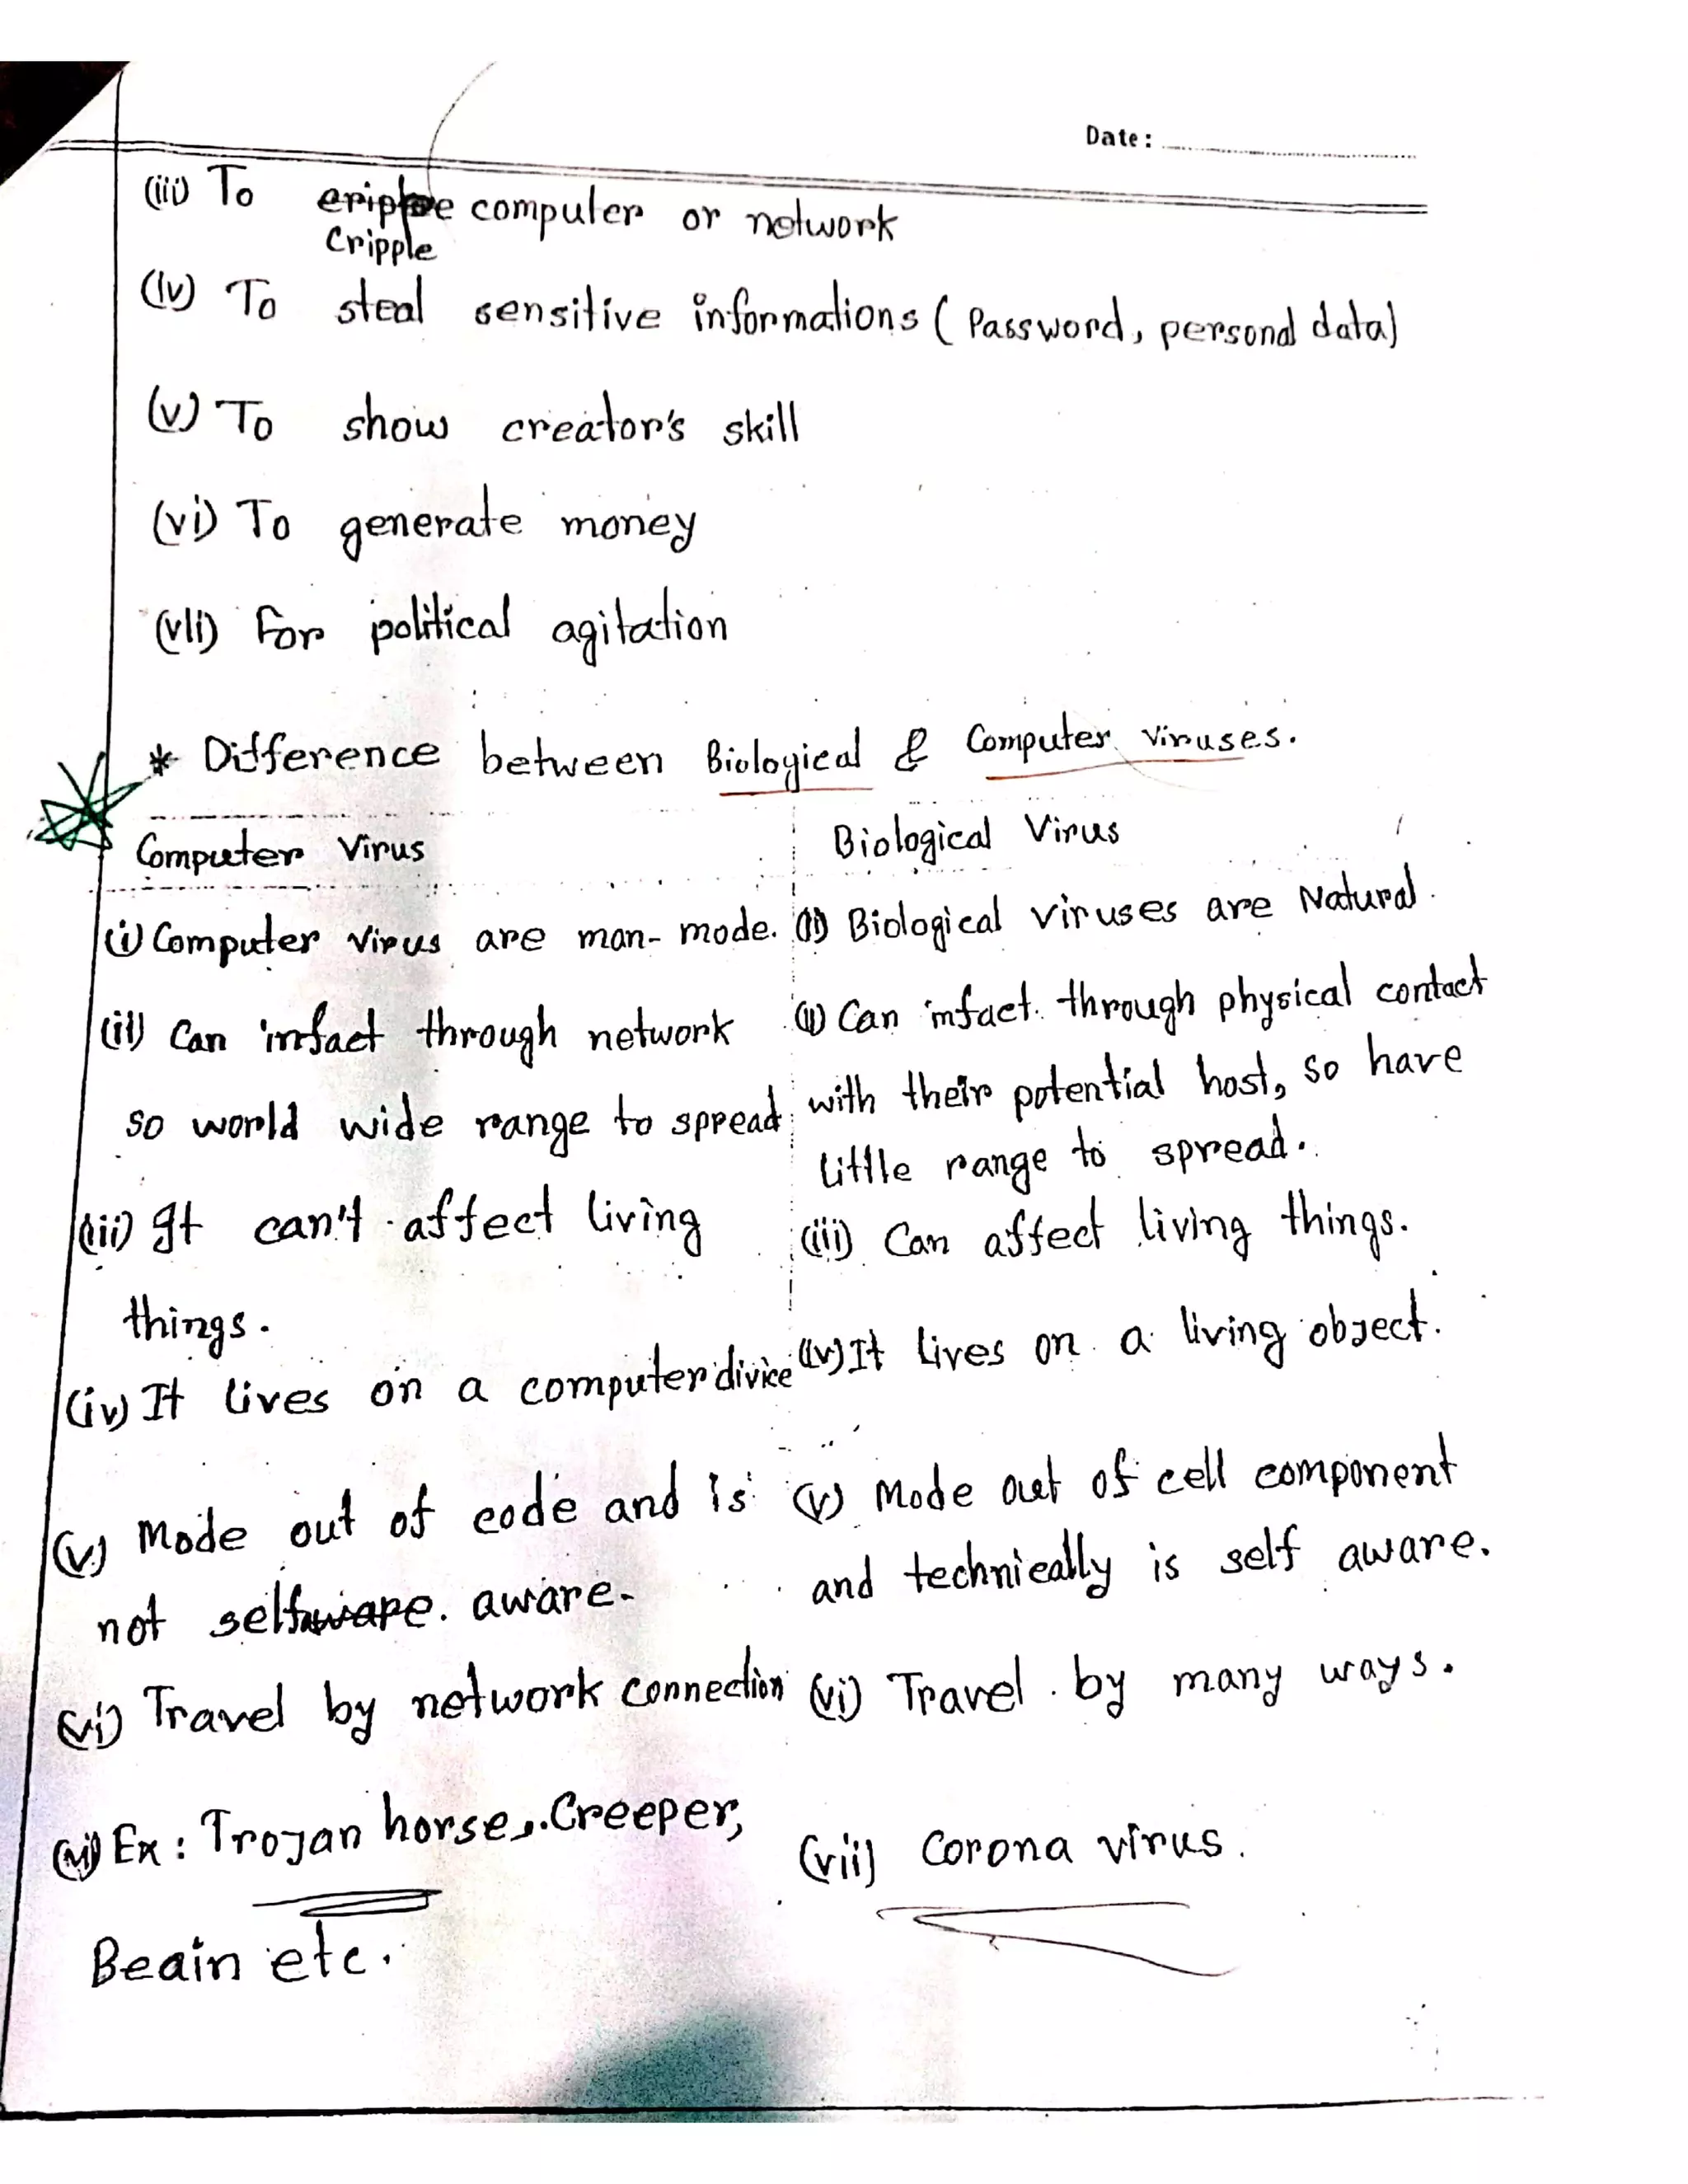 Date:
(iii) To cripple computer or network
Cripple
(iv) To steal sensitive informations (Password, personal data)
(v) To show creator's skill
(vi) To generate money
(vii) For political agitation
* Difference between Biological & Computer Viruses.
Computer Virus
Biological Virus
(i) Computer Virus are man-made.
(ii) Can infact through network
so world wide range to spread
(iii) It can't affect living
things.
(iv) It lives on a computer divice
(v) Made out of code and is
not self aware.
(vi) Travel by network connection
(vii) Ex: Trojan horse, Creeper,
Beain etc.
(i) Biological viruses are Natural.
(ii) Can infact through physical contact
with their potential host, so have
little range to spread.
(iii) Can affect living things.
(iv) It lives on a living object.
(v) Made out of cell component
and technically is self aware.
(vi) Travel by many ways.
(vii) Corona virus.